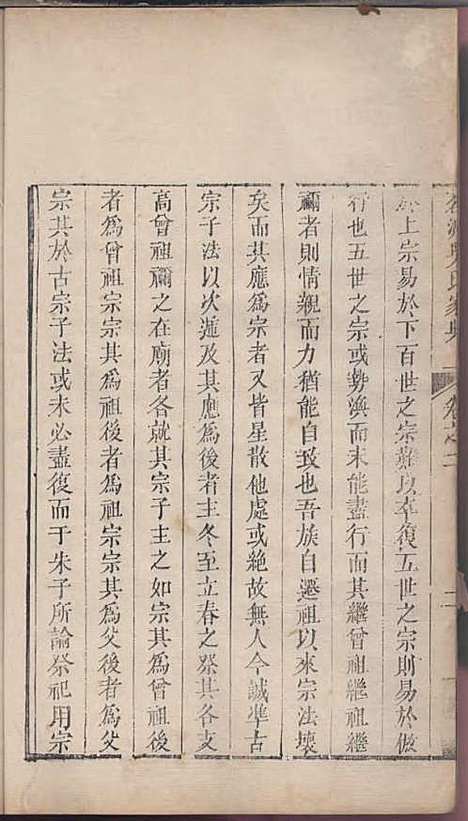 茗洲吳氏家典 卷之二
於上宗易於下百世之宗難以卒復五世之宗則易於倣
行也五世之宗或勢渙而未能盡行而其繼曾祖繼祖繼
禰者則情親而力猶能自致也吾族自遷祖以來宗法壞
矣而其應為宗者又皆星散他處或絶故無人今誠準古
宗子法以次遞及其應為後者主冬至立春之祭其各支
高曾祖禰之在廟者各就其宗子主之如宗其為曾祖後
者為曾祖宗宗其為祖後者為祖宗宗其為父後者為父
宗其於古宗子法或未必盡復而于朱子所論祭祀用宗